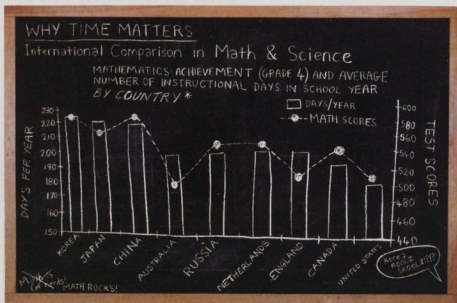 WHY TIME MATTERS
International Comparison in Math & Science
MATHEMATICS ACHIEVEMENT (GRADE 4) AND AVERAGE
NUMBER OF INSTRUCTIONAL DAYS IN SCHOOL YEAR
BY COUNTRY*
DAYS/YEAR
MATH SCORES
DAYS PER YEAR
230
220
210
200
190
180
170
160
150
600
580
560
540
520
500
480
460
440
TEST SCORES
KOREA
JAPAN
CHINA
AUSTRALIA
RUSSIA
NETHERLANDS
ENGLAND
CANADA
UNITED STATES
MATH ROCKS!